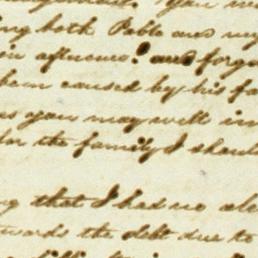 you
both Pablo and my
affluence! and forge
been caused by his fa
as you may well im
for the family I shoul
that I had no ele
towards the debt due to